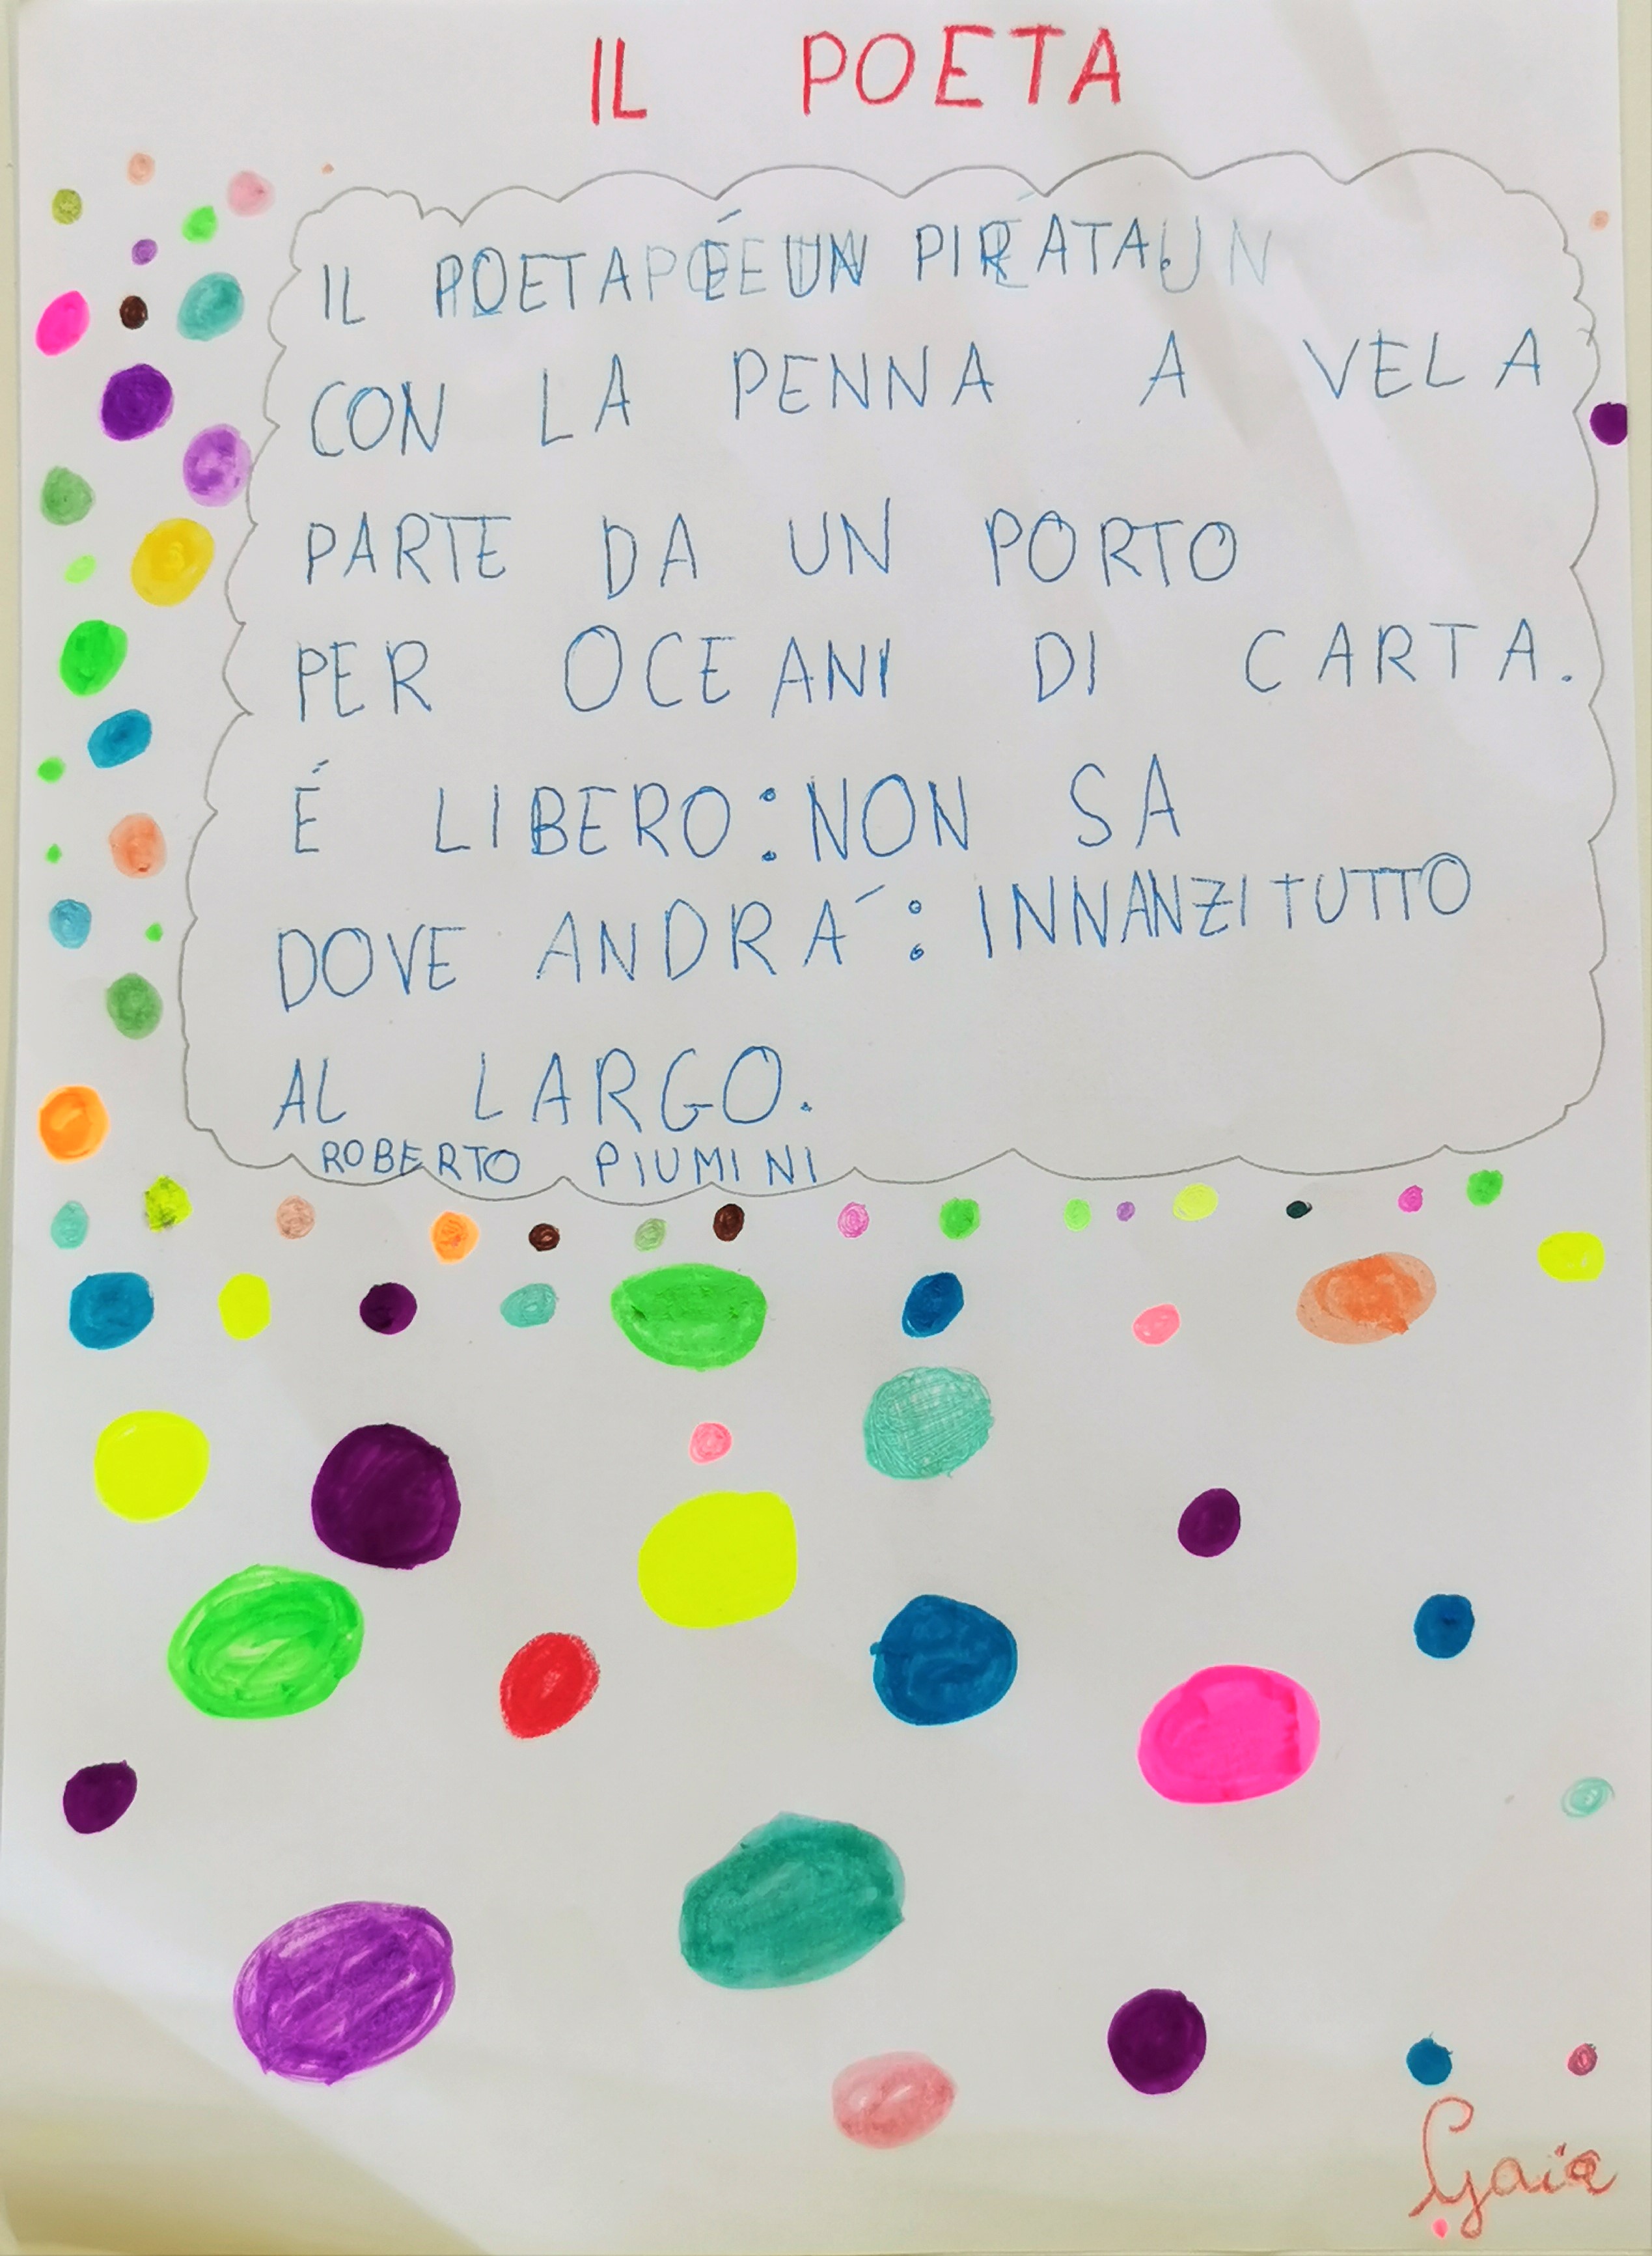 IL POETA
IL POETA É UN PIRATA.
CON LA PENNA A VELA
PARTE DA UN PORTO
PER OCEANI DI CARTA.
É LIBERO: NON SA
DOVE ANDRA´: INNANZITUTTO
AL LARGO.
ROBERTO PIUMINI
Gaia